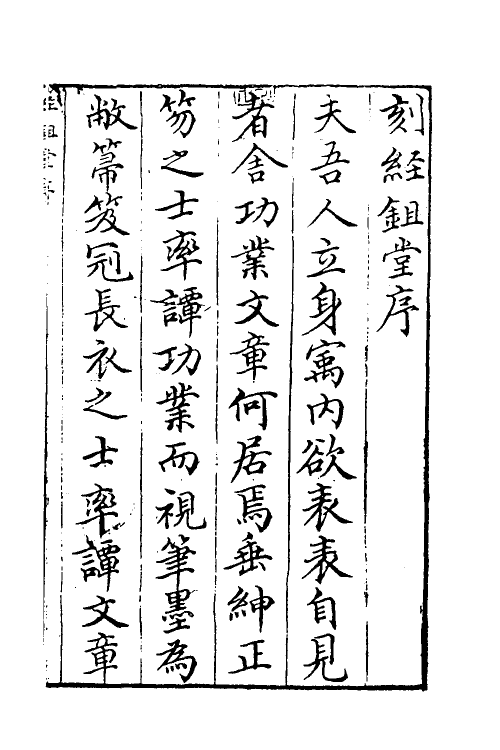 刻經鉏堂序
夫吾人立身寓內欲表表自見
者舍功業文章何居焉垂紳正
笏之士率譚功業而視筆墨為
敝箒笈冠長衣之士率譚文章